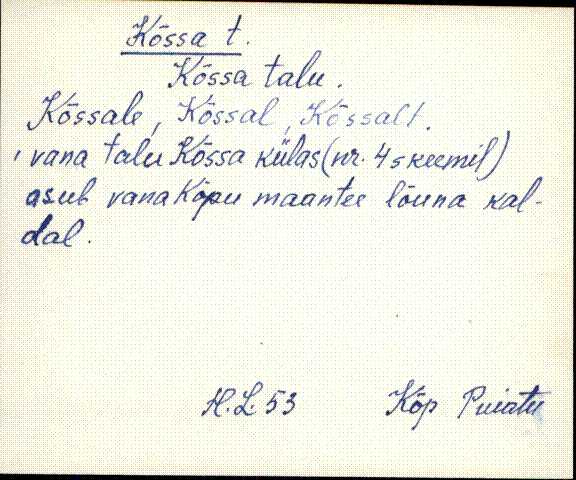 Kõssa t.
Kõssa talu.
Kõssale, Kõssal, Kõssalt.
vana talu Kõssa külas (nr. 4 skeemil)
asub vana Kõpu maantee lõuna kal-
dal.
H.L. 53 Kõp Puiatu